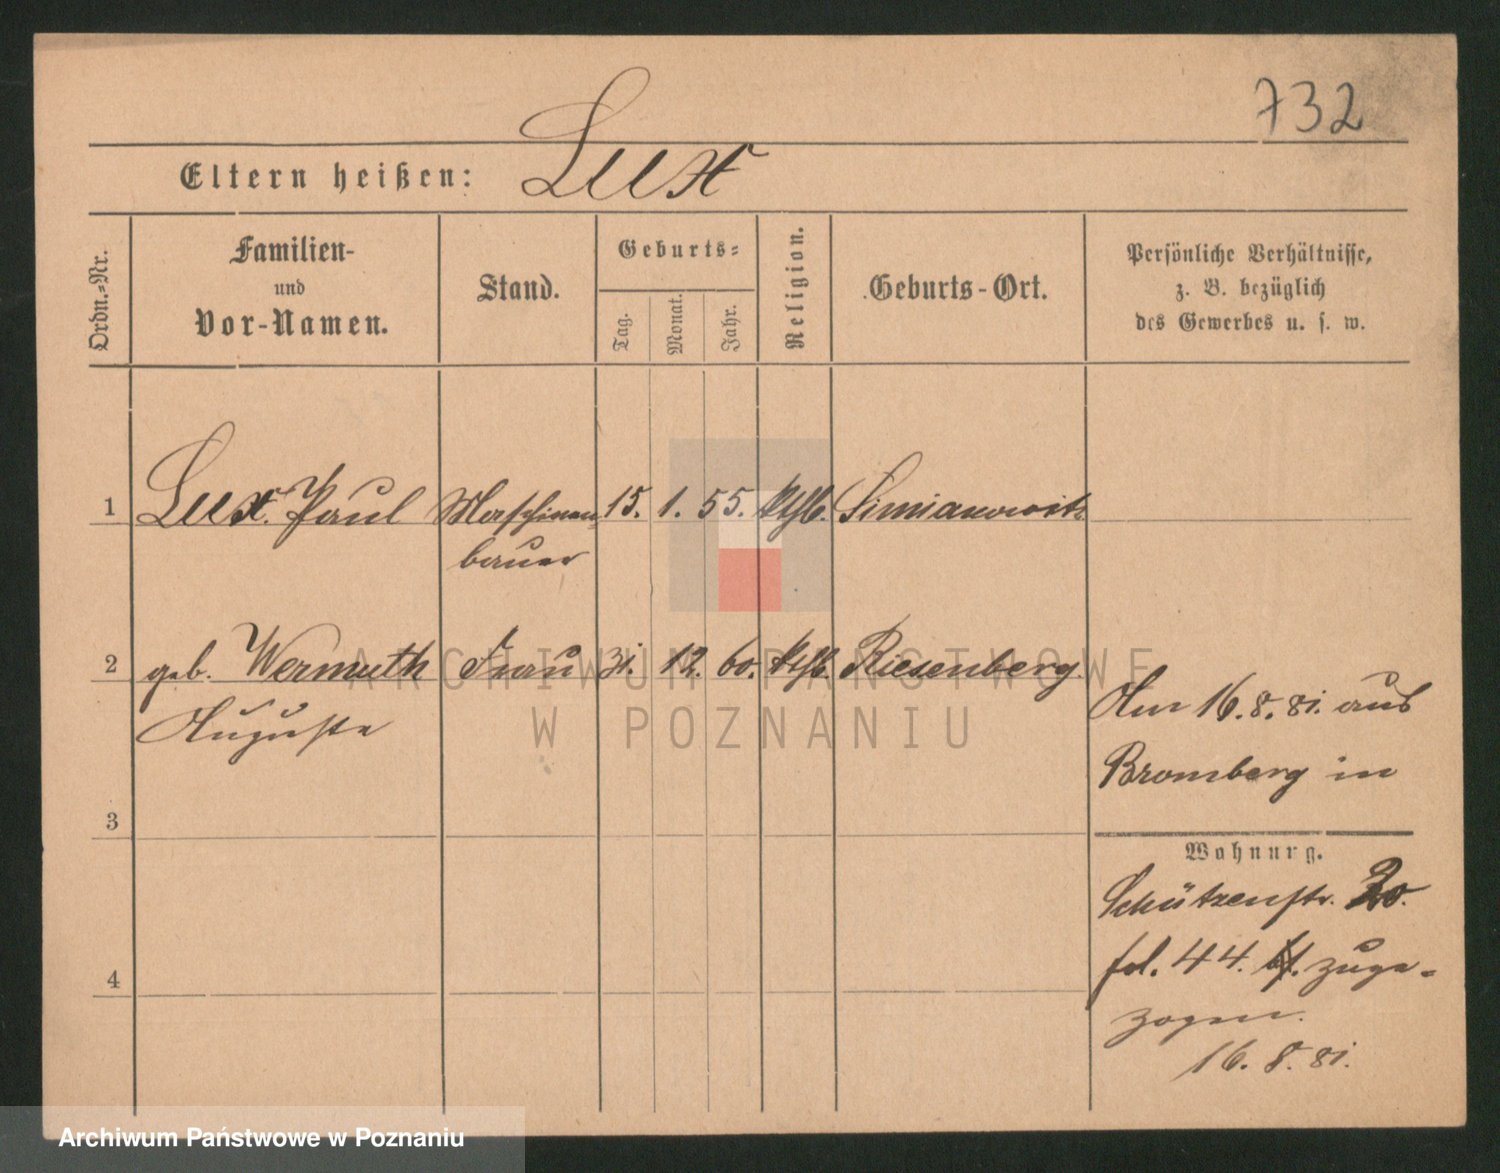 732
Eltern heißen: Lux
Ordn.-Nr.
Familien-
und
Vor-Namen.
Stand.
Geburts-
Tag.
Monat.
Jahr.
Religion.
Geburts-Ort.
Persönliche Verhältnisse,
z. B. bezüglich
des Gewerbes u. s. w.
1 Lux. Paul Maschinen- 15. 1. 55. kthl. Simianowitz
bauer
2 geb. Wermuth Frau 31. 12. 60. kthl. Riesenberg.
Auguste
Am 16. 8. 81. aus
Bromberg in
3
Wohnung.
Schützenstr. 20.
fol. 44. zuge-
zogen.
16. 8. 81.
4
ARCHIWUM PAŃSTWOWE
W POZNANIU
Archiwum Państwowe w Poznaniu